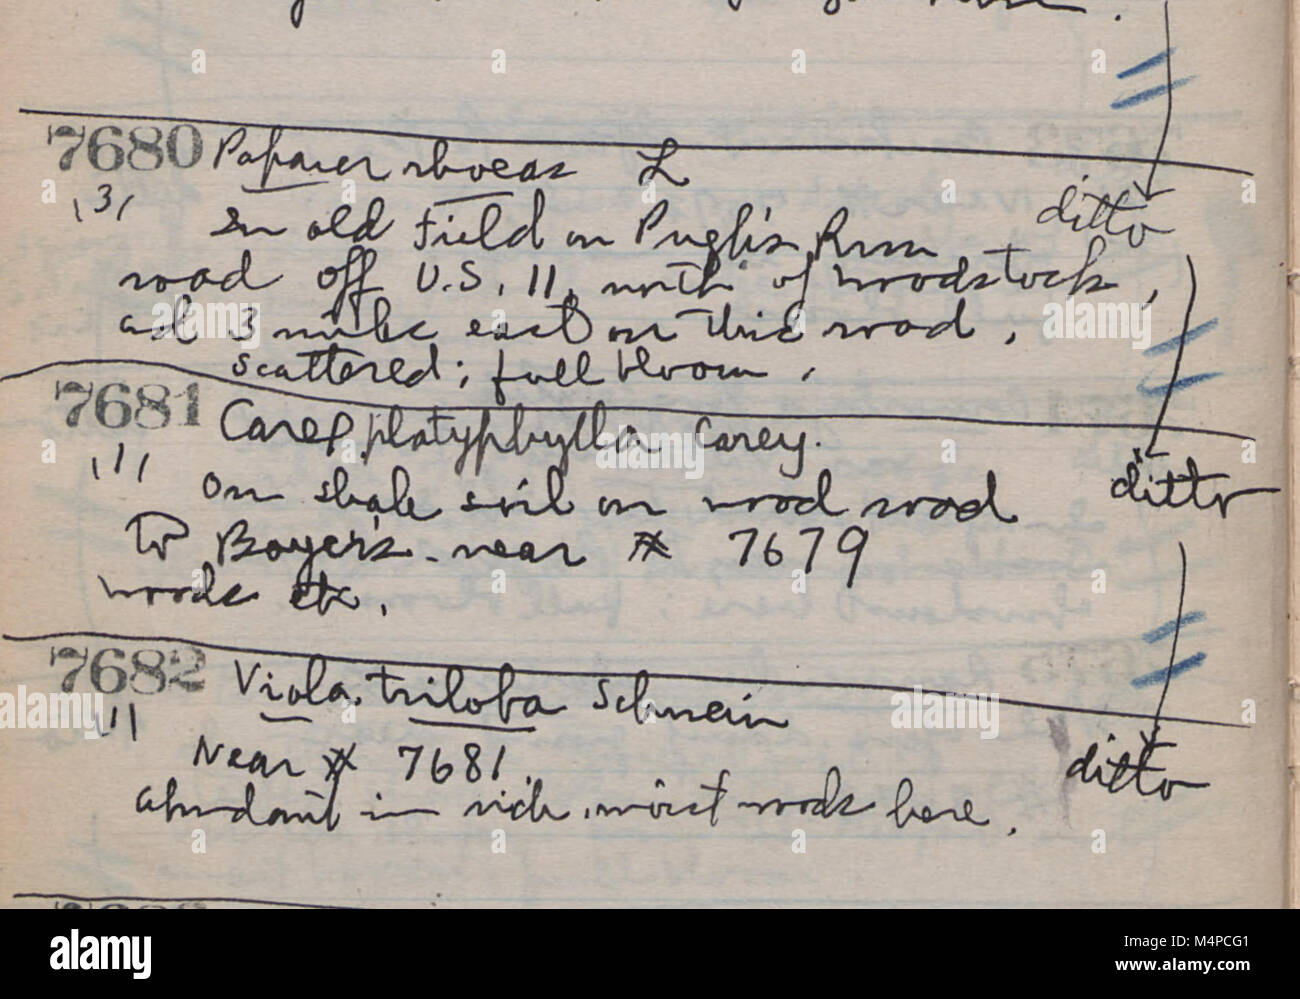 7680 Papaver rhoeas L
131
In old field on Pugh's Run
ditto
road off U.S. 11, north of Woodstock,
and 3 miles east on this road.
scattered; full bloom.
7681 Carex platyphylla Carey.
111
On shale soil on wood road
ditto
To Boyer's - near # 7679
woods etc.
7682 Viola triloba Schwein
111
Near # 7681.
ditto
abundant in rich, moist woods here.
alamy
Image ID: M4PCG1
www.alamy.com